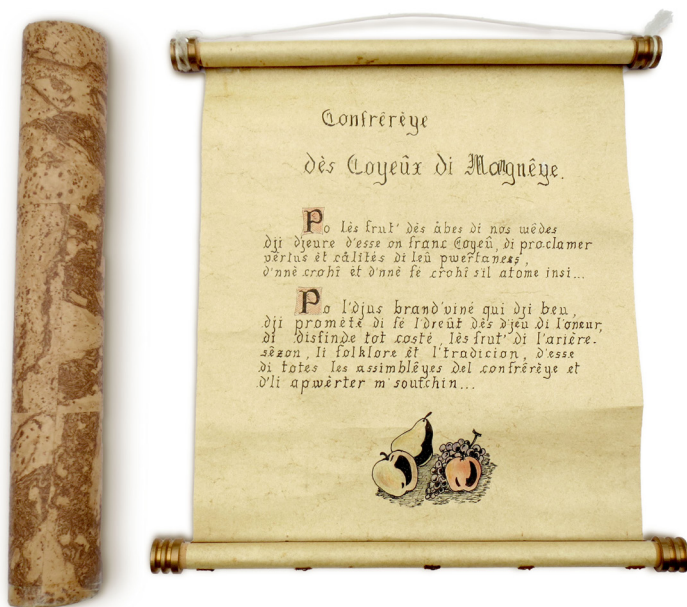 Confrérèye
dès Coyeûx di Magnêye.
Po lès frut' dès âbes di nos wêdes
dji djeure d'esse on franc Coyeû, di proclamer
vèrtus èt câlités di leû pwertaness,
d'nnè crohî èt d'nnè fé crohî sil atome insi...
Po l'djus brand'viné qui dji beu,
dji promète di fé l'dreût dès d'jeu di l'oneur,
di disfinde tot costé, lès frut' di l'arière-
sêzon, li folklore èt l'tradicion, d'esse
di totes les assimblêyes del confrérèye et
d'li apwèrter m' soutchin...